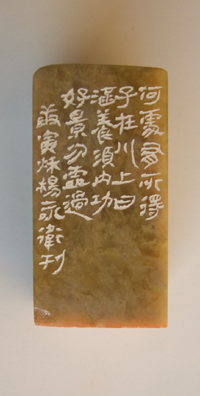 何處尋所得
子在川上曰
涵養須內功
好景勿虛過
庚寅秋楊永衛刊